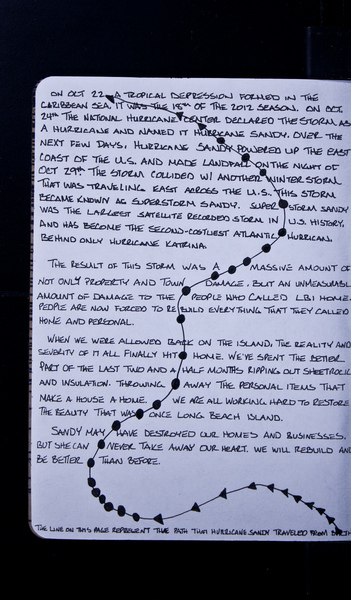 ON OCT 22 A TROPICAL DEPRESSION FORMED IN THE
CARIBBEAN SEA. IT WAS THE 18TH OF THE 2012 SEASON. ON OCT.
24TH THE NATIONAL HURRICANE CENTER DECLARED THE STORM AS
A HURRICANE AND NAMED IT HURRICANE SANDY. OVER THE
NEXT FEW DAYS, HURRICANE SANDY POWERED UP THE EAST
COAST OF THE U.S. AND MADE LANDFALL ON THE NIGHT OF
OCT 29TH. THE STORM COLLIDED W/ ANOTHER WINTER STORM
THAT WAS TRAVELING EAST ACROSS THE U.S.. THIS STORM
BECAME KNOWN AS SUPERSTORM SANDY. SUPER STORM SANDY
WAS THE LARGEST SATELLITE RECORDED STORM IN U.S. HISTORY,
AND HAS BECOME THE SECOND-COSTLIEST ATLANTIC HURRICAN,
BEHIND ONLY HURRICANE KATRINA.
THE RESULT OF THIS STORM WAS A MASSIVE AMOUNT OF
NOT ONLY PROPERTY AND TOWN DAMAGE, BUT AN UNMEASURABL
AMOUNT OF DAMAGE TO THE PEOPLE WHO CALLED LBI HOME.
PEOPLE ARE NOW FORCED TO REBUILD EVERYTHING THAT THEY CALLED
HOME AND PERSONAL.
WHEN WE WERE ALLOWED BACK ON THE ISLAND, THE REALITY AND
SEVERITY OF IT ALL FINALLY HIT HOME. WE'VE SPENT THE BETTER
PART OF THE LAST TWO AND A HALF MONTHS RIPPING OUT SHEETROCK
AND INSULATION. THROWING AWAY THE PERSONAL ITEMS THAT
MAKE A HOUSE A HOME. WE ARE ALL WORKING HARD TO RESTORE
THE REALITY THAT WAS ONCE LONG BEACH ISLAND.
SANDY MAY HAVE DESTROYED OUR HOMES AND BUSINESSES,
BUT SHE CAN NEVER TAKE AWAY OUR HEART. WE WILL REBUILD AND
BE BETTER THAN BEFORE.
THE LINE ON THIS PAGE REPRESENT THE PATH THAT HURRICANE SANDY TRAVELED FROM BIRTH